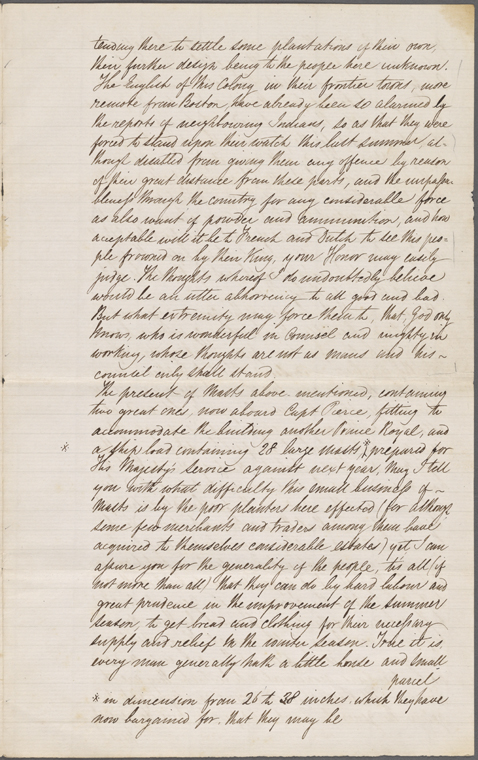 tending there to settle some plantations of their own,
their further design being to the people here unknown.
The English of this Colony in their frontier towns, more
remote from Boston, have already been so alarmed by
the reports of neighbouring Indians, so as that they were
forced to stand upon their watch this last summer, al-
though disabled from giving them any offence by reason
of their great distance from these parts, and the unpassa-
bleness through the country for any considerable force
as also want of powder and ammunition, and how
acceptable will it be to French and Dutch to see this peo-
ple frowned on by their King, your Honor may easily
judge. The thoughts whereof I do undoubtedly believe
would be an utter abhorrency to all good and bad.
But what extremity may force them to, that God only
knows, who is wonderful in Counsel and mighty in
working, whose thoughts are not as mans and his
counsel only shall stand
The present of Masts above mentioned, containing
two great ones, now aboard Capt Pierce, fitting to
accommodate the building another Prince Royal, and
* a ship load containing 28 large masts * prepared for
His Majesty's Service against next year, May I tell
you with what difficulty this small business of
Masts is by the poor planters here effected (for although
some few merchants and traders among them have
acquired to themselves considerable estates) yet I can
assure you for the generality of the people, tis all (if
not more than all) that they can do by hard labour and
great prudence in the improvement of the summer
season, to get bread and clothing for their necessary
supply and relief in the winter season. True it is,
every man generally hath a little house and small
parcel
* in dimension from 26 to 38 inches. which they have
now bargained for. that they may be